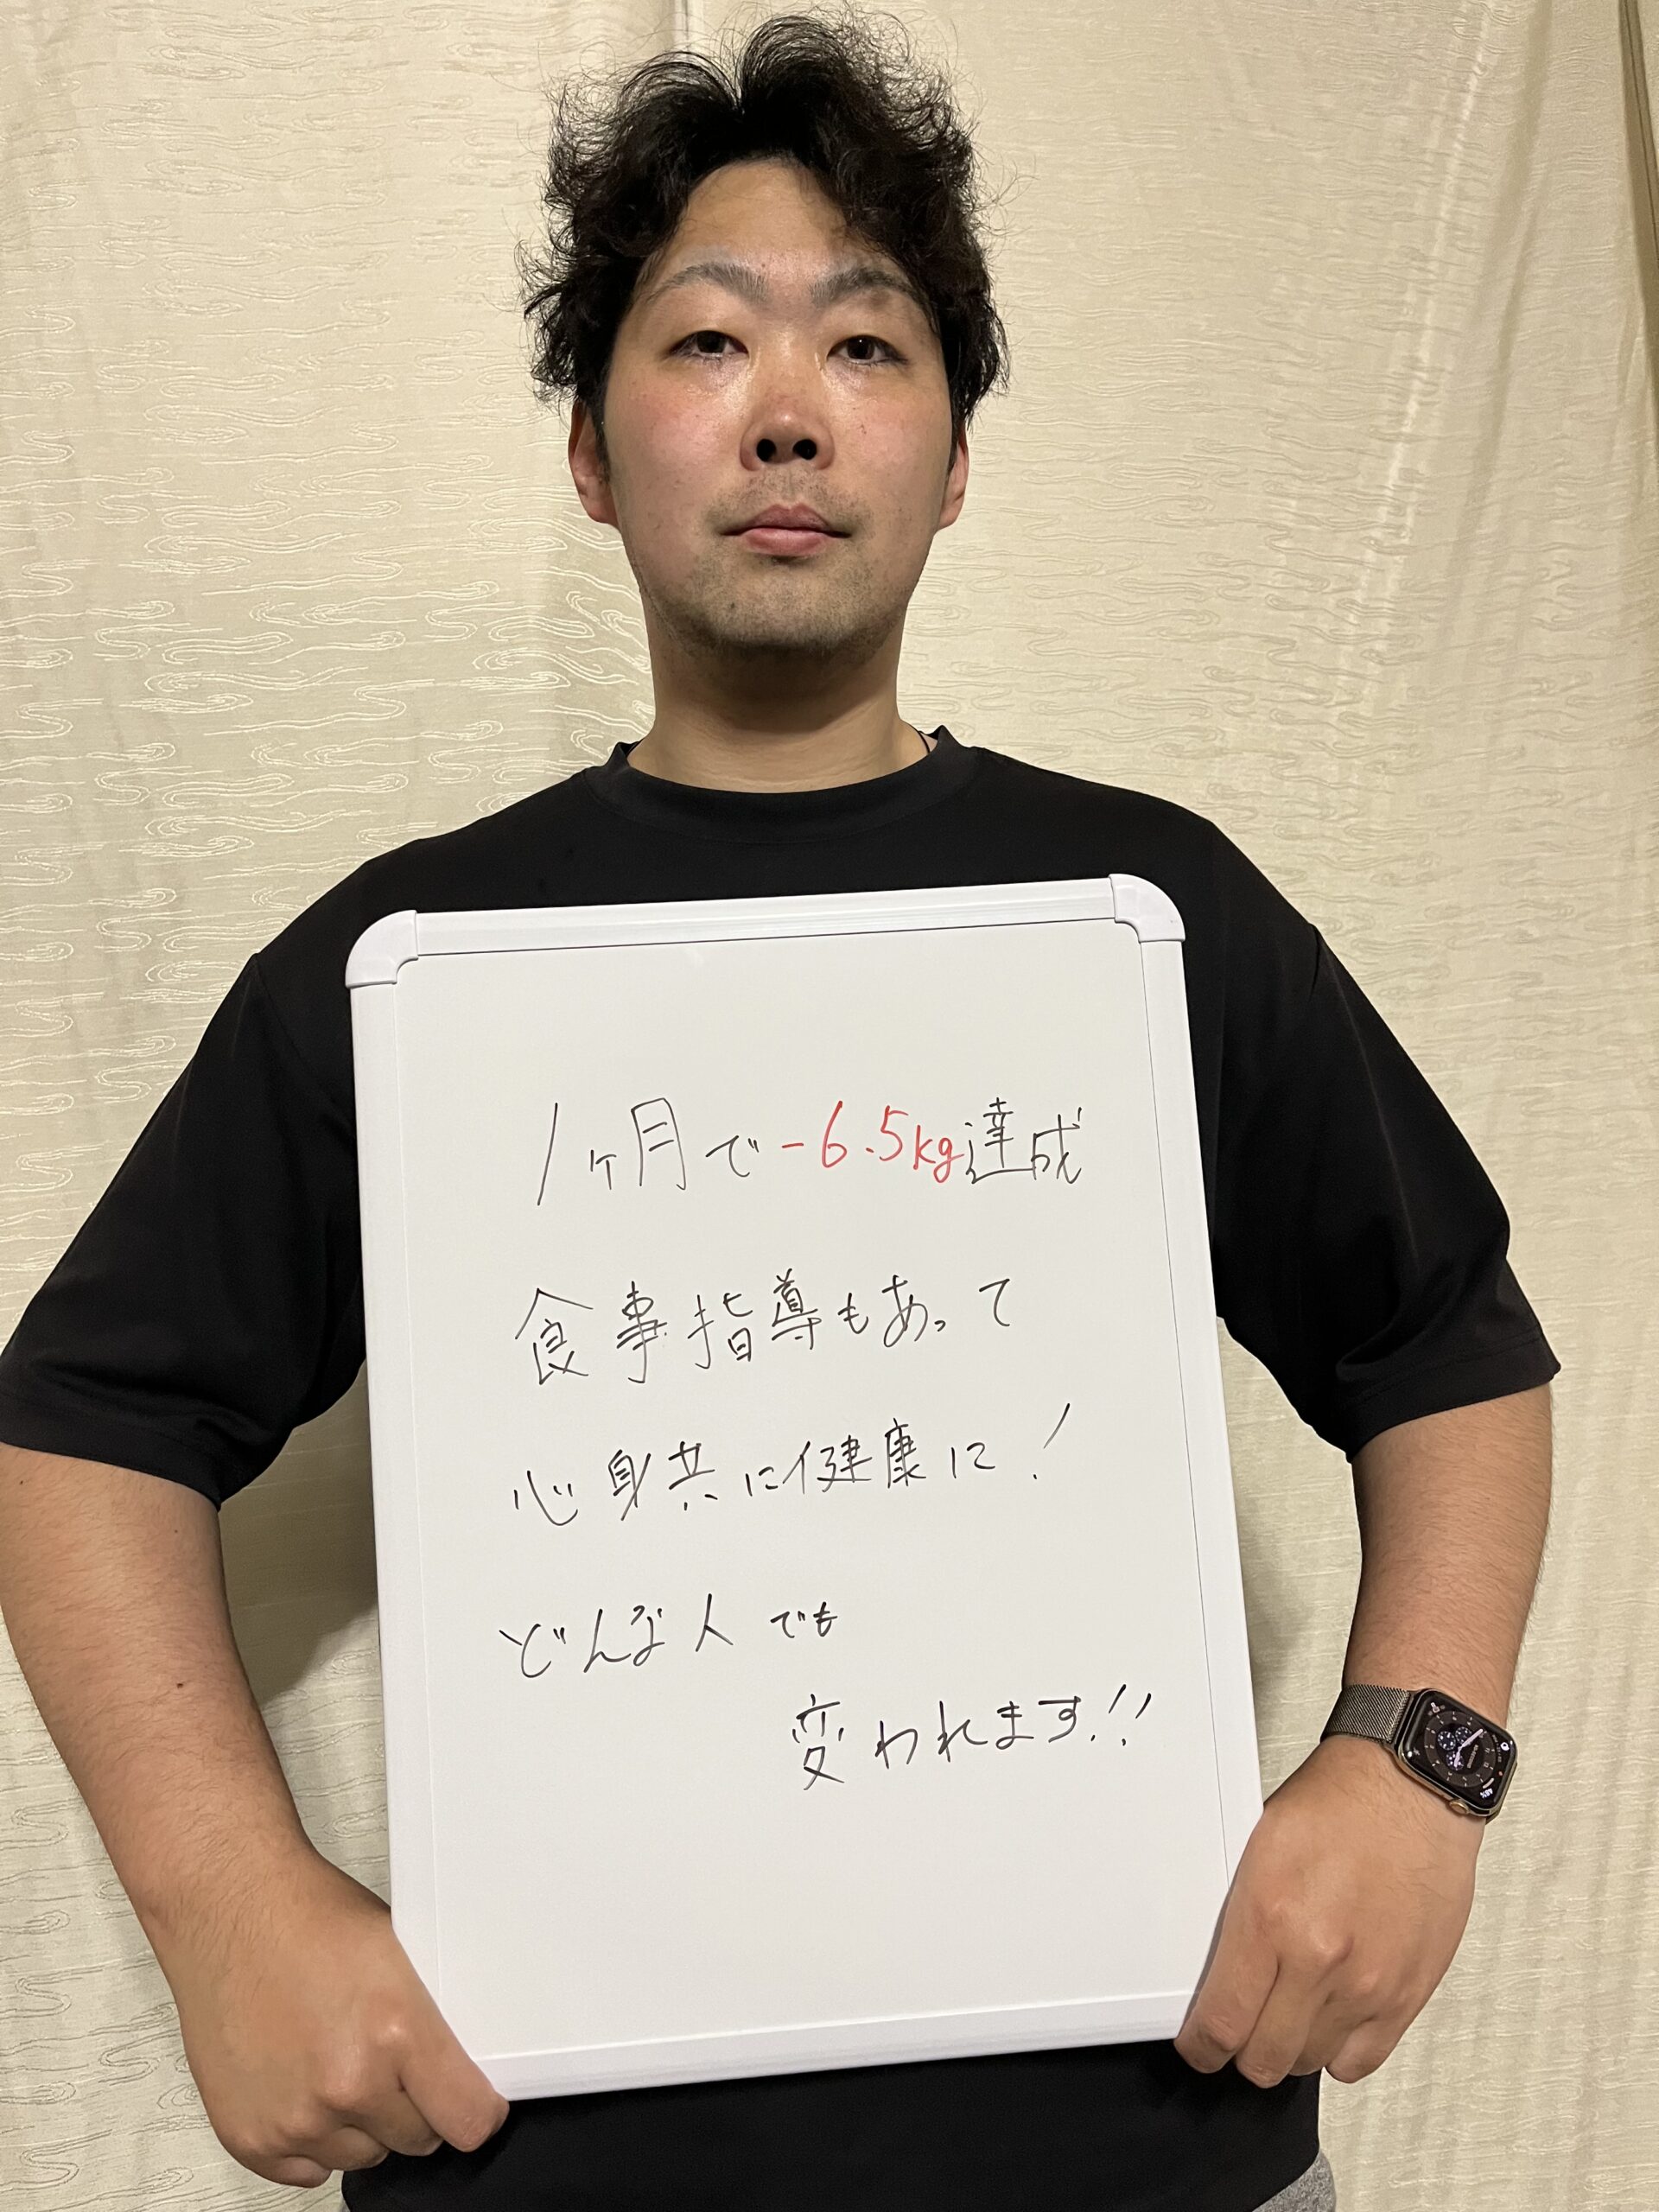 1ヶ月で-6.5kg達成
食事指導もあって
心身共に健康に!
どんな人でも
変われます!!